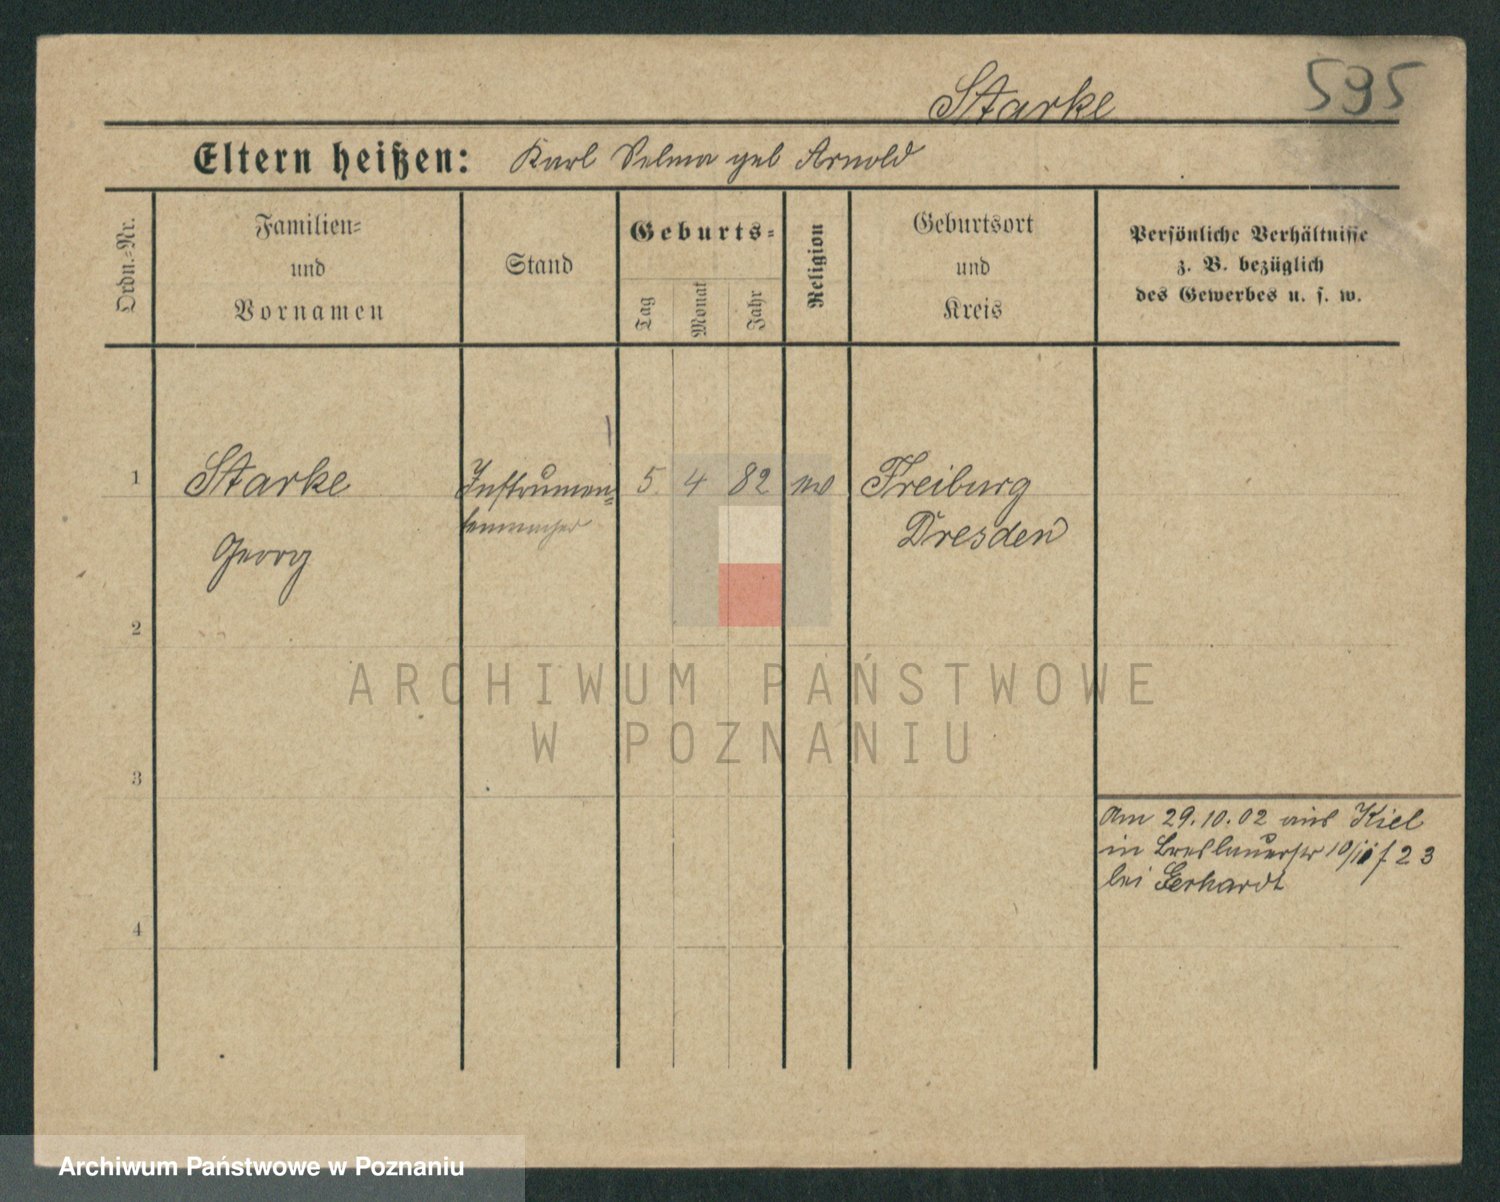 Starke
595
Eltern heißen: Karl Selma geb Arnold
Ordn.-Nr.
Familien-
und
Vornamen
Stand
Geburts-
Tag
Monat
Jahr
Religion
Geburtsort
und
Kreis
Persönliche Verhältnisse
z. B. bezüglich
des Gewerbes u. s. w.
1
Starke
Georg
Instrumen=
tenmacher
5.
4
82
ev
Freiburg
Dresden
2
3
Am 29.10.02 aus Kiel
in Breslauerstr 10/11 f 23
bei Gerhardt
4
ARCHIWUM PAŃSTWOWE
W POZNANIU
Archiwum Państwowe w Poznaniu